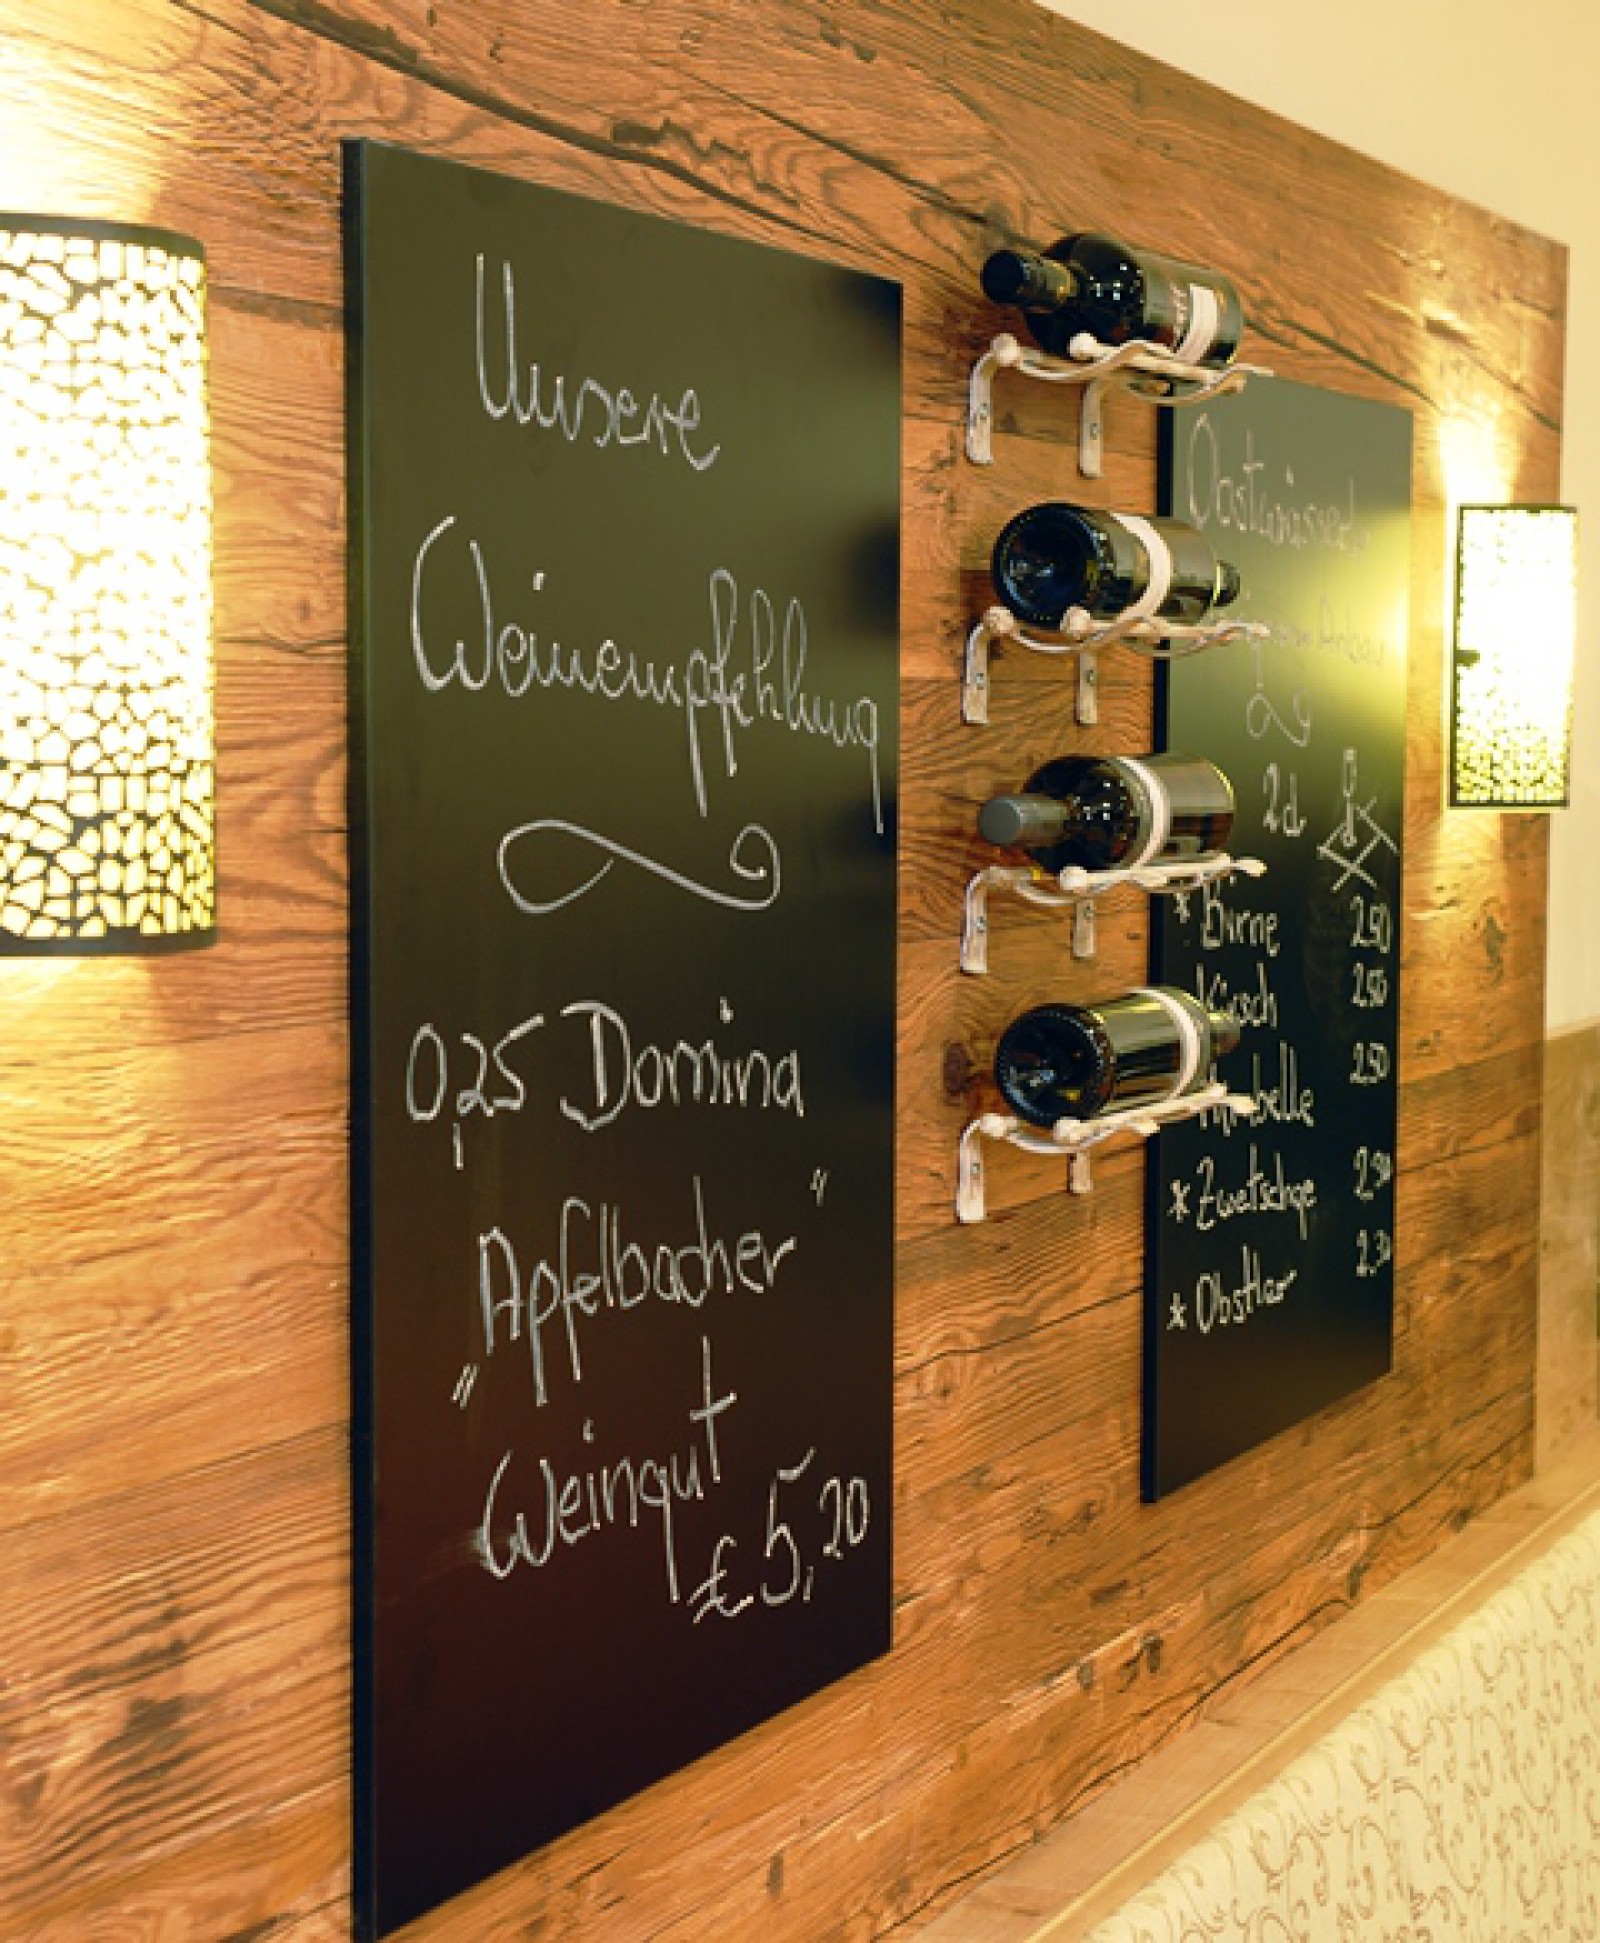 Unsere
Weinempfehlung
0,25 Domina
„Apfelbacher"
Weingut
€ 5,20
Obstwasser
Anbau
2cl
* Birne 2,50
Kirsch 2,50
Mirabelle 2,50
* Zwetschge 2,30
* Obstler 2,30